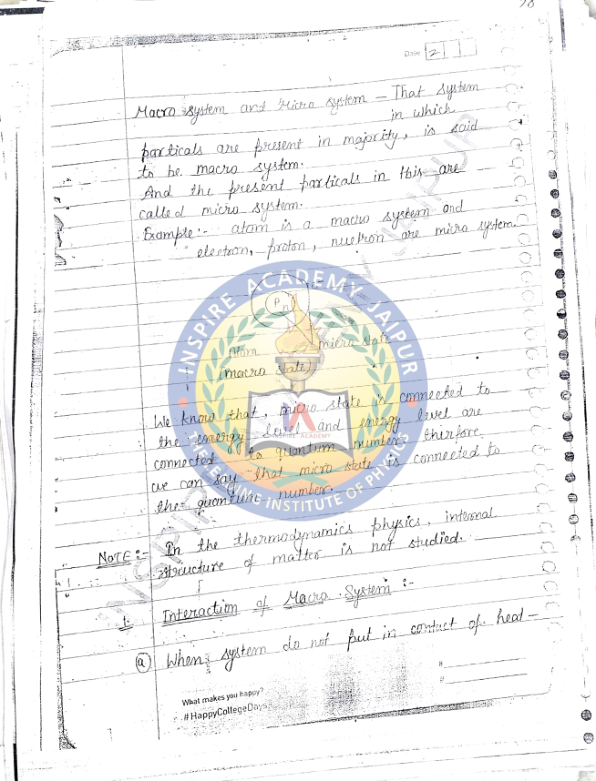 Date 2
Macro system and Micro system – That system
in which
particals are present in majority, is said
to be macro system.
And the present particals in this are
called micro system.
Example:- atom is a macro system and
electron, proton, nuetron are micro system.
P
n
atom
micro state
macro state
We know that, micro state is connected to
the energy level and energy level are
connected to quantum number therfore
we can say that micro state is connected to
the quantum number.
NOTE:- In the thermodynamics physics, internal
structure of matter is not studied.
1. Interaction of Macro System :-
(a) When system do not put in contact of heat –
What makes you happy?
#HappyCollegeDays
#
#
INSPIRE ACADEMY JAIPUR
ACADEMY
INSTITUTE OF PHYSICS